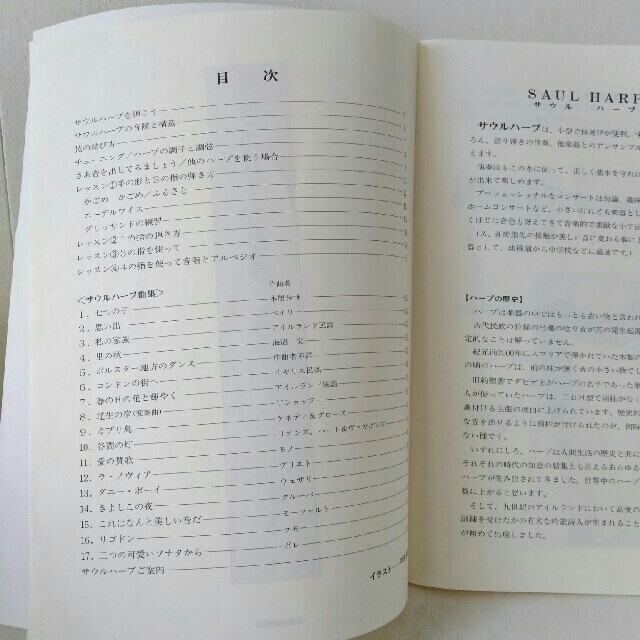 目 次
サウルハープを弾こう
サウルハープの音階と構造
弦の結び方
チューニング/ハープの調子と調弦
さあ音を出してみましょう/他のハープを使う場合
レッスン①手の形と②の指の弾き方
かごめ かごめ/ふるさと
エーデルワイス
グリッサンドの練習
レッスン②①の指の弾き方
レッスン③③の指を使って
レッスン④4の指を使って音階とアルペジオ
<サウルハープ曲集> 作曲者
1. 七つの子 本居長世
2. 思い出 ベイリー
3. 私の家族 アイルランド民謡
4. 里の秋 海沼 実
5. ボルスター地方のダンス 作曲者不詳
6. ロンドンの街へ イギリス民謡
7. 春の日の花と輝やく アイルランド民謡
8. 埴生の宿(変奏曲) ビショップ
9. カプリ島 ケネディ&グロース
10. 谷間の灯
11. 愛の賛歌 モノー
12. ラ・ノヴィア プリエト
13. ダニー・ボーイ ウェザリー
14. きよしこの夜 グルーバー
15. これはなんと美しい音だ モーツァルト
16. リゴドン ラモー
17. 二つの可愛いソナタから
サウルハープご案内
イラスト
SAUL HARP
サウル ハープ
サウルハープは、小型で持運びが便利、
ろん、語り弾きの伴奏、他楽器とのアンサンブル
えます。
演奏法もこの本に従って、正しく基本を守れば
が出来て楽しめます。
プロフェッショナルなコンサートは勿論、趣味
ホームコンサートなど、小さいけれども楽器とし
くほどに音色も冴えてきて音楽的で素敵な小宇宙
器として、幼稚園から中学校などに最適です)
【ハープの歴史】
ハープは楽器の中ではもっとも古い物と言われ
古代民族の狩猟の弓矢の唸り音が其の発生起源
定的なことは解っていません。
の頃のハープは、前の柱が無く音の小さい物でし
旧約聖書でダビデ王がハープの名手であった事
人が使っていたハープは、三日月型で前柱がなく
裏付ける主張の項目に上げられています。歴史的
な音を出せるように前柱が付けられたのが、何時
ない様です。
いずれにしろ、ハープは人間生活の歴史と共に
それぞれの時代の知恵の結集とも言えるあらゆる
ハープが生み出されてきました。世界中のハープ
数に上がると思います。
そして、九世紀のアイルランドにおいて高度の
訓練を受けたかの有名な吟遊詩人が生まれること
が初めて出現しました。